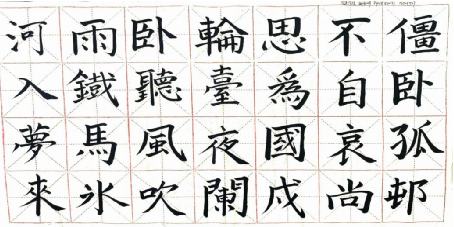 僵卧孤邨
不自哀尚
思爲國戍
輪臺夜闌
卧聽風吹
雨鐵馬氷
河入夢來